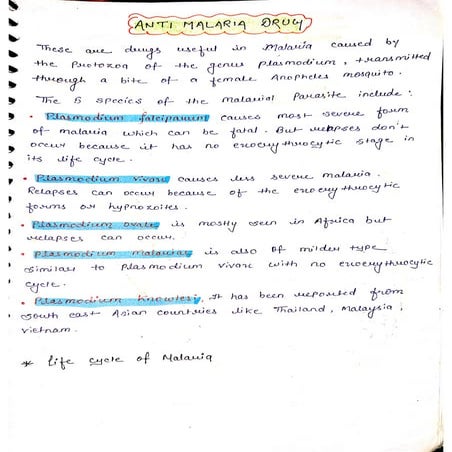 ANTI MALARIA DRUG
These are drugs useful in Malaria caused by
the Protozoa of the genus Plasmodium, transmitted
through a bite of a female Anopheles mosquito.
The 5 species of the Malarial Parasite include:
• Plasmodium falciparum causes most severe form
of malaria which can be fatal. But relapses don't
occur because it has no exoerythrocytic stage in
its life cycle.
• Plasmodium vivax causes less severe malaria.
Relapses can occur because of the exoerythrocytic
forms or hypnozoites.
• Plasmodium ovale is mostly seen in Africa but
relapses can occur.
• Plasmodium malariae is also of milder type
similar to Plasmodium vivax with no exoerythrocytic
cycle.
• Plasmodium Knowlesi, It has been reported from
south east Asian countries like Thailand, Malaysia,
Vietnam.
* life cycle of Malaria